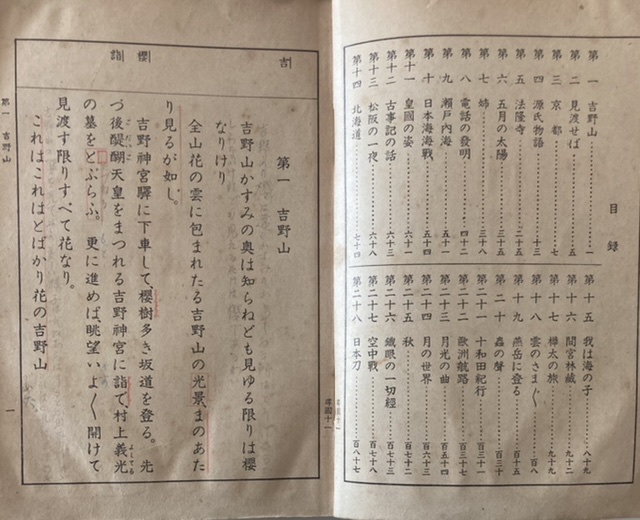 目録
第一 吉野山 一
第二 見渡せば 五
第三 京都 七
第四 源氏物語 十三
第五 法隆寺 二十五
第六 五月の太陽 三十五
第七 姉 三十八
第八 電話の發明 四十二
第九 瀬戸内海 五十一
第十 日本海海戰 五十四
第十一 皇國の姿 六十一
第十二 古事記の話
第十三 松阪の一夜 六十八
第十四 北海道 七十四
第十五 我は海の子 八十九
第十六 間宮林藏 九十二
第十七 樺太の旅 九十九
第十八 雲のさま〴〵 百八
第十九 燕岳に登る 百十五
第二十 蟲の聲
第二十一 十和田紀行 百三十一
第二十二 歐洲航路
第二十三 月光の曲 百五十四
第二十四 月の世界 百六十三
第二十五 秋 百七十二
第二十六 鐵眼の一切經 百七十三
第二十七 空中戰 百七十八
第二十八 日本刀 百八十七
尋國十一
尋國十一
吉
櫻
訓
第一 吉野山
吉野山かすみの奥は知らねども見ゆる限りは櫻
なりけり
全山花の雲に包まれたる吉野山の光景まのあた
り見るが如し。
吉野神宮驛に下車して、櫻樹多き坂道を登る。先
づ後醍醐天皇をまつれる吉野神宮に詣で、村上義光
の墓をとぶらふ。更に進めば、眺望いよ〳〵開けて
見渡す限りすべて花なり。
これはこれはとばかり花の吉野山
第一 吉野山
一